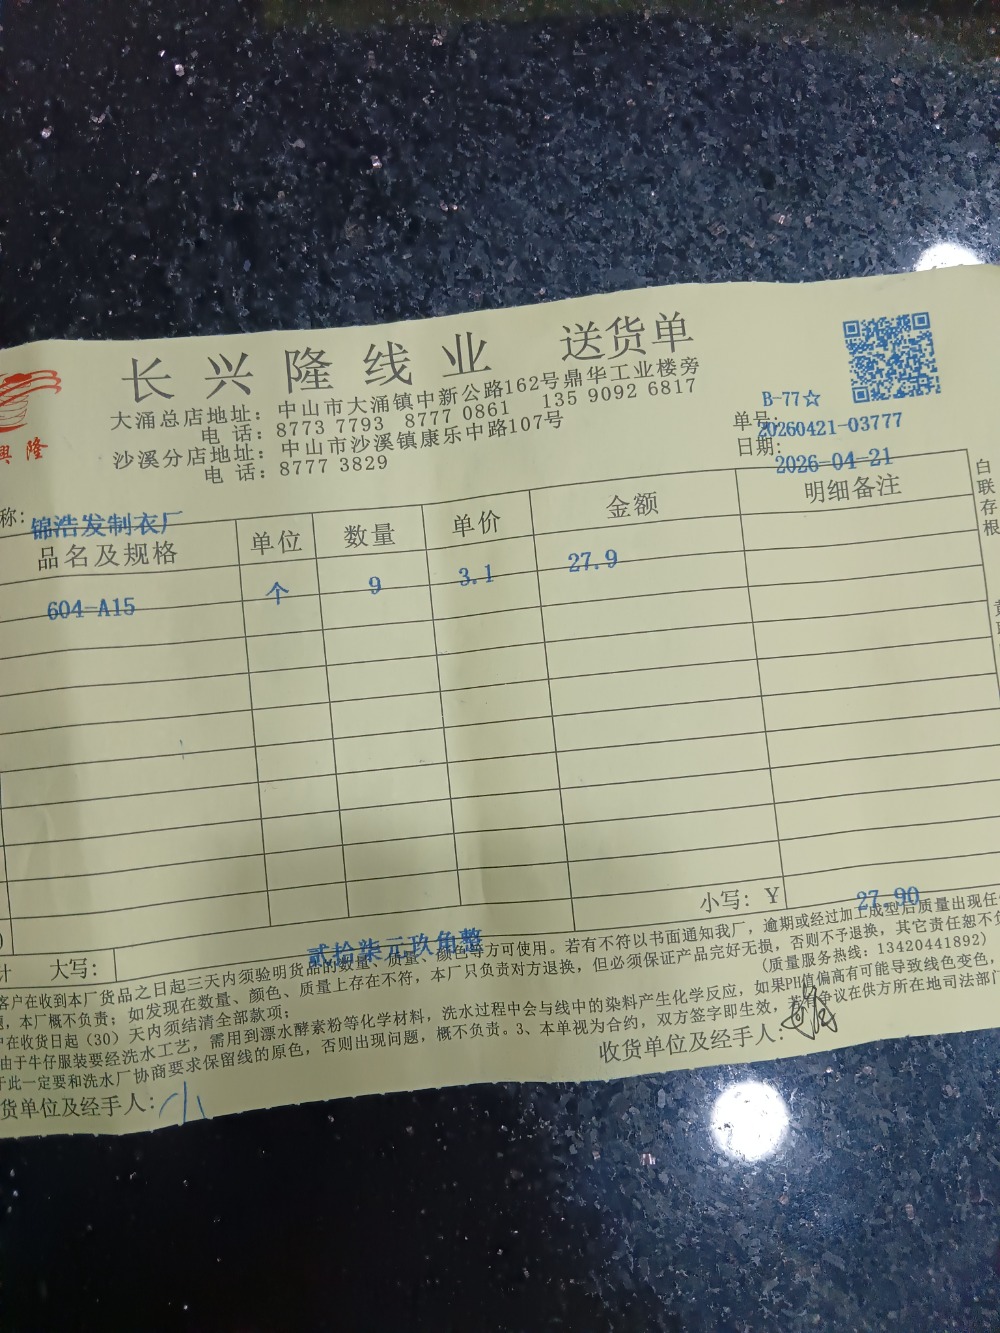 长兴隆线业 送货单
大涌总店地址：中山市大涌镇中新公路162号鼎华工业楼旁
电 话：8773 7793 8777 0861 135 9092 6817
沙溪分店地址：中山市沙溪镇康乐中路107号
电 话：8777 3829
興隆
B-77☆
单号：20260421-03777
日期：2026-04-21
称：锦浩发制衣厂
品名及规格 单位 数量 单价 金额 明细备注
604-A15 个 9 3.1 27.9
白联存根
小写：￥ 27.90
计 大写：贰拾柒元玖角整
客户在收到本厂货品之日起三天内须验明货品的数量、质量、颜色等方可使用。若有不符以书面通知我厂，逾期或经过加工成型后质量出现任
，本厂概不负责；如发现在数量、颜色、质量上存在不符，本厂只负责对方退换，但必须保证产品完好无损，否则不予退换，其它责任恕不负
户在收货日起（30）天内须结清全部款项；
（质量服务热线：13420441892）
由于牛仔服装要经洗水工艺，需用到漂水酵素粉等化学材料，洗水过程中会与线中的染料产生化学反应，如果PH值偏高有可能导致线色变色，
于此一定要和洗水厂协商要求保留线的原色，否则出现问题，概不负责。3、本单视为合约，双方签字即生效，若有争议在供方所在地司法部门
货单位及经手人：
收货单位及经手人：